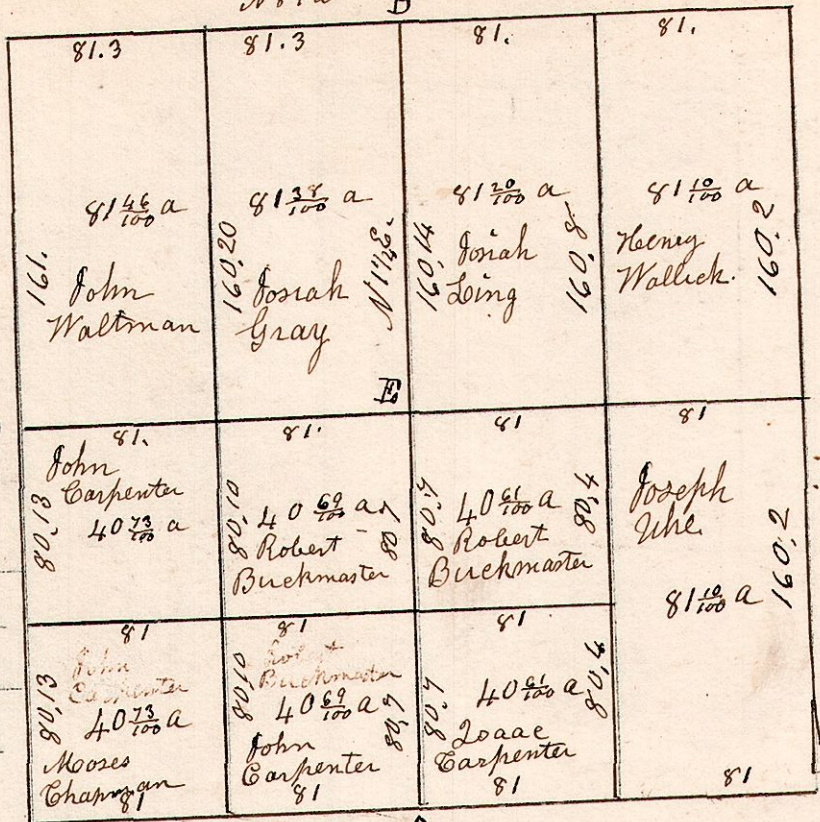 B
81.3
81.3
81.
81.
81 46/100 a
161.
John
Waltman
81 38/100 a
160,20
Josiah
Gray
N 1 1/4 E.
E.
81 20/100 a
160,14
Josiah
Ling
160,8
81 10/100 a
Henry
Wallick.
160,2
81.
John
Carpenter
40 73/100 a
80,13
81.
80,10
40 69/100 a
Robert
Buckmaster
80,7
81
80,7
40 61/100 a
Robert
Buckmaster
80,4
81
Joseph
Uhe
81 10/100 a
160,2
81
80,13
John
Carpenter
40 73/100 a
Moses
Chapman
81
81
80,10
Robert
Buckmaster
40 69/100 a
John
Carpenter
80,7
81
81
80,7
40 61/100 a
Isaac
Carpenter
80,4
81
81